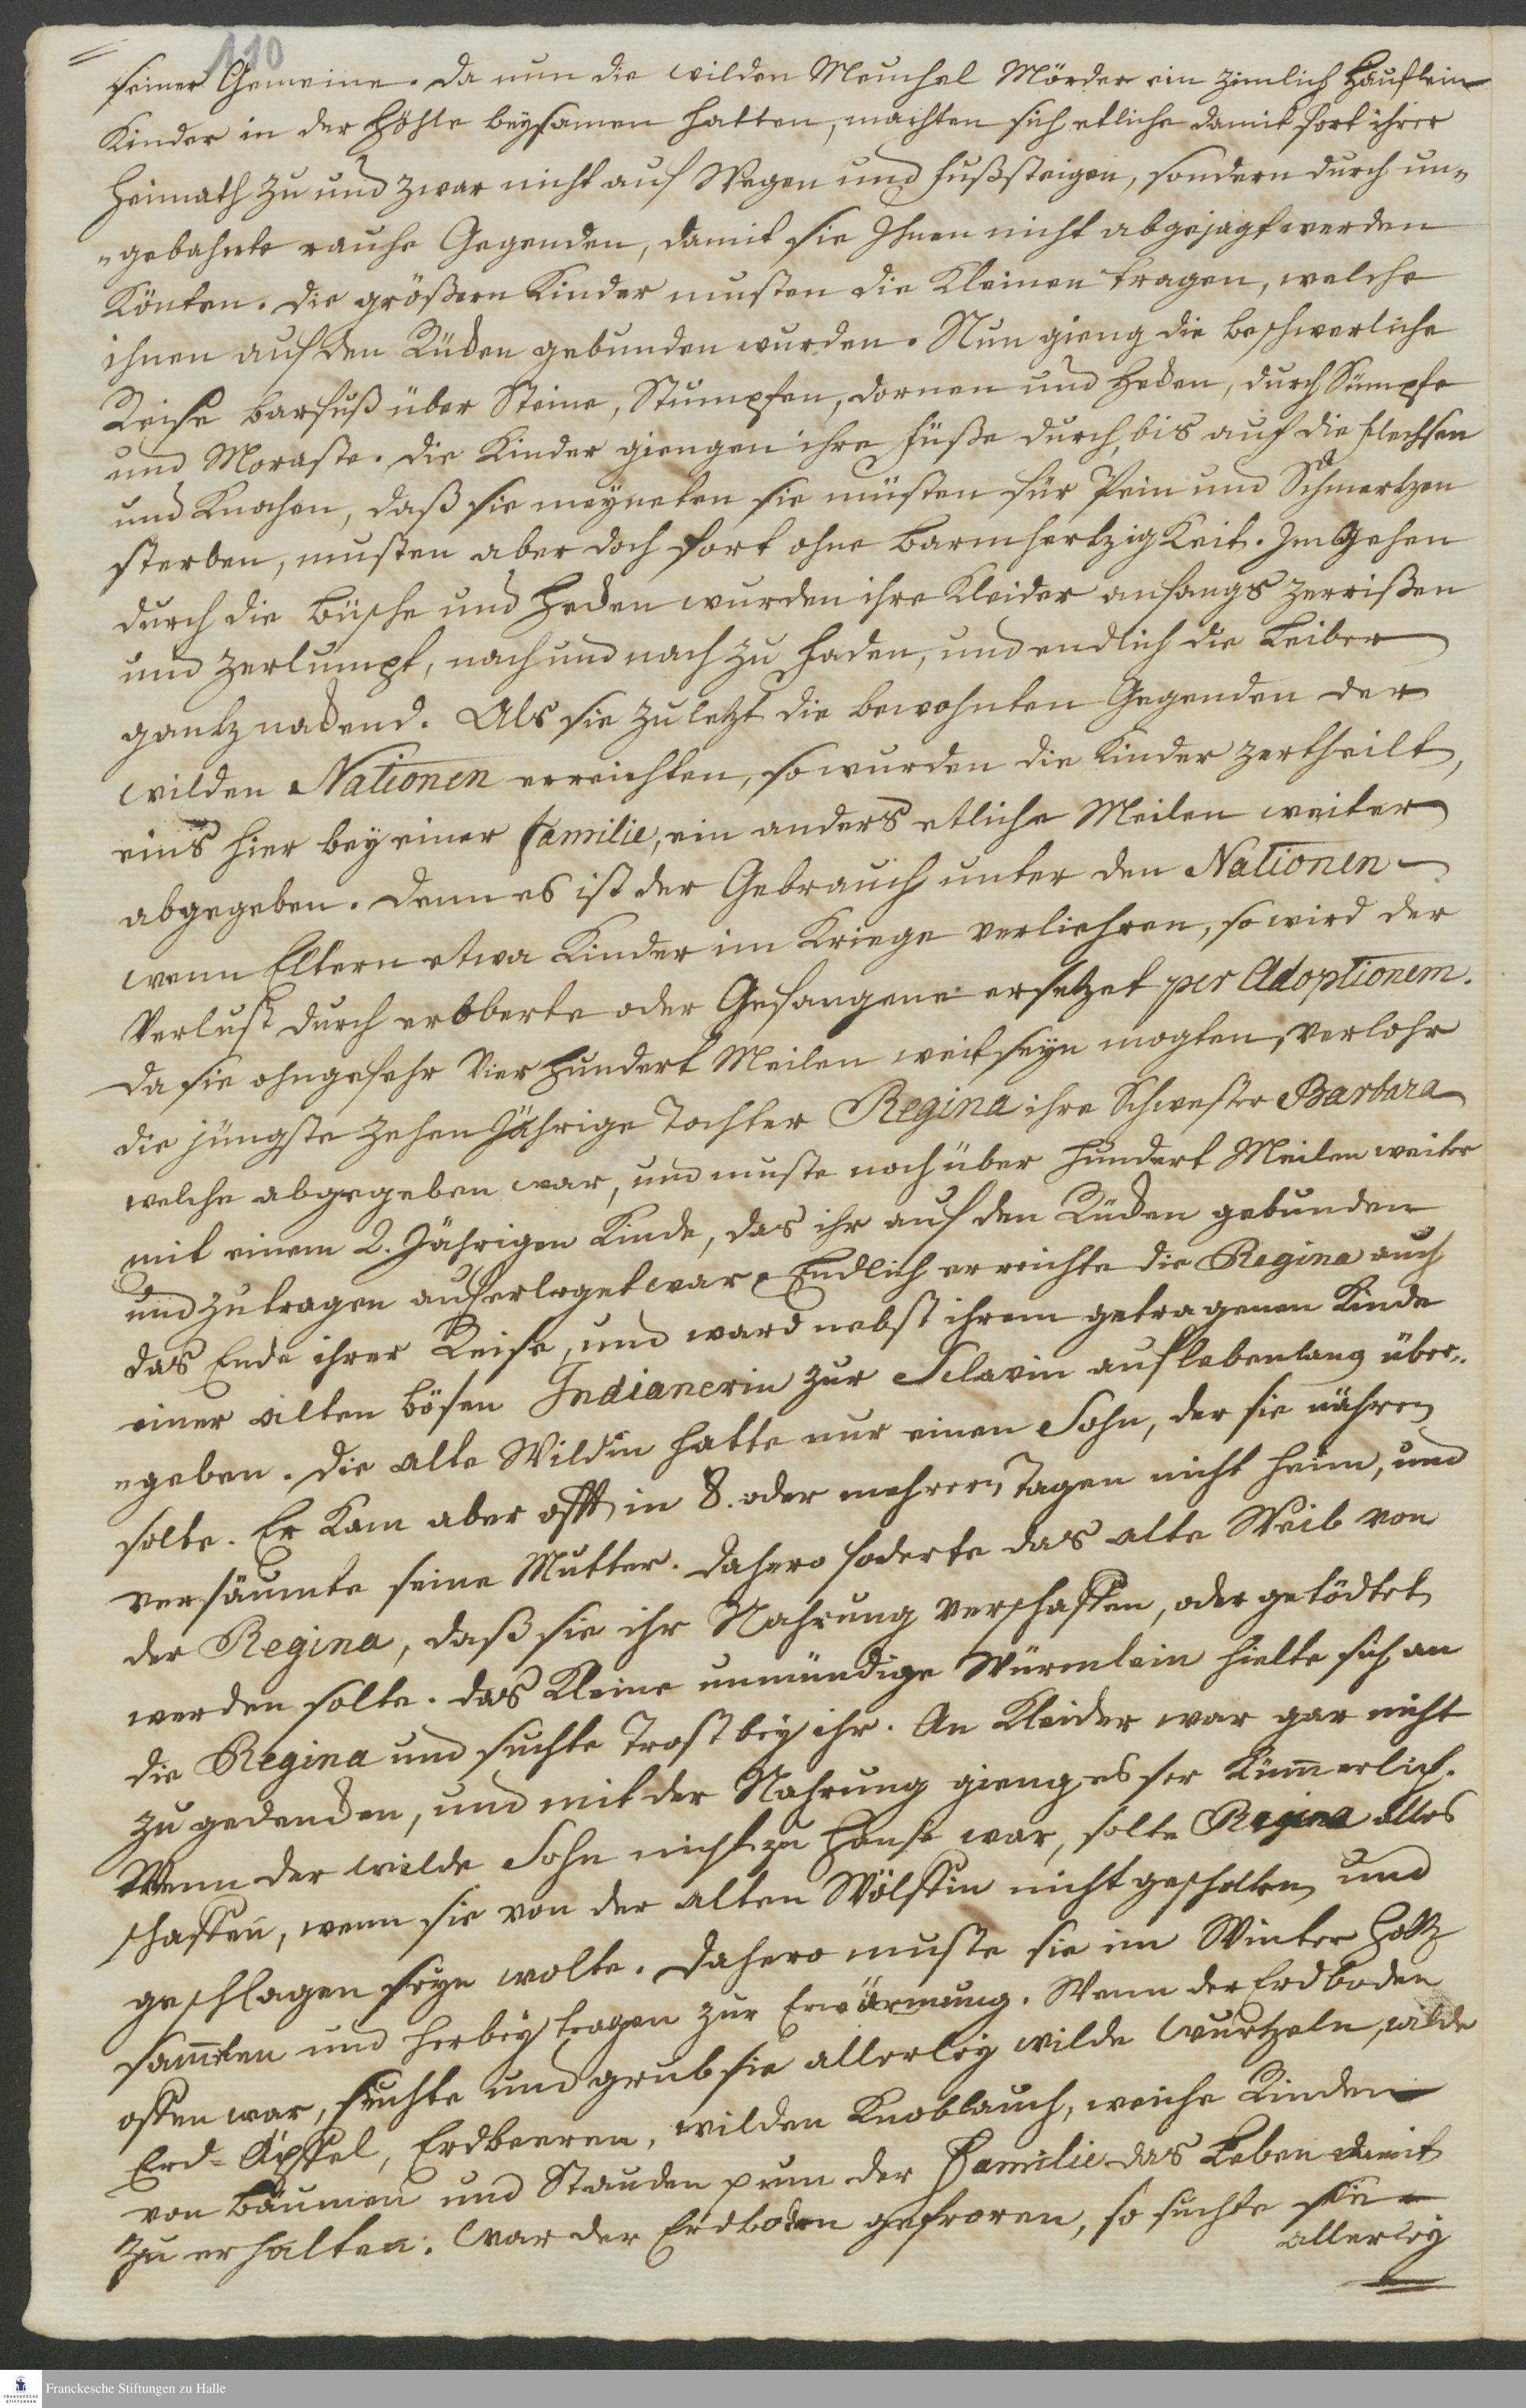 110
seiner Gemeine. Da nun die wilden Meuchel Mörder ein zimlich Häuflein
Kinder in der Höhle beysamen hatten, machten sich etliche damit fort ihrer
Heimath zu und zwar nicht auf Wegen und fußsteigen, sondern durch un„
„gebahnte rauhe Gegenden, damit sie Ihnen nicht abgejagt werden
Könten. Die größern Kinder musten die Kleinen tragen, welche
ihnen auf den Rücken gebunden wurden. Nun gieng die beschwerliche
Reise barfuß über Steine, Stumpfen, dornen und Hecken, durch Sümpfe
und Moraste. Die Kinder giengen ihre füße durch, bis auf die flechsen
und Knochen, daß sie meyneten sie müsten für Pein und Schmertzen
sterben, musten aber doch fort ohne Barmhertzigkeit. Im Gehen
durch die büsche und Hecken wurden ihre Kleider anfangs zerrißen
und zerlumpt, nach und nach zu faden, und endlich die Leiber
gantz nackend. Als sie zuletzt die bewohnten Gegenden der
wilden Nationen erreichten, so wurden die Kinder zertheilt,
eins hier bey einer familie, ein anders etliche Meilen weiter
abgegeben. Denn es ist der Gebrauch unter den Nationen
wenn Eltern etwa Kinder im Kriege verliehren, so wird der
Verlust durch erobberte oder Gefangene ersetzet per Adoptionem.
Da sie ohngefehr Vier hundert Meilen weit seyn mogten, verlohr
die jüngste zehen Jährige Tochter Regina ihre Schwester Barbara
welche abgegeben war, und muste noch über hundert Meilen weiter
mit einem 2. Jährigen Kinde, das ihr auf den Rücken gebunden
und zu tragen auferleget war. Endlich erreichte die Regina auch
das Ende ihrer Reise, und ward nebst ihrem getragenen Kinde
einer alten bösen Indianerin zur Sclavin auf lebenlang über„
„geben. Die alte Wildin hatte nur einen Sohn, der sie nähren
solte. Er kam aber offt in 8. oder mehrern Tagen nicht heim, und
versäumte seine Mutter. Dahero foderte das alte Weib von
der Regina, daß sie ihr Nahrung verschaffen, oder getödtet
werden solte. Das Kleine unmündige Würmlein hielte sich an
die Regina und suchte Trost bey ihr. An Kleider war gar nicht
zu gedencken, und mit der Nahrung gieng es ser Kümerlich.
Wenn der wilde Sohn nicht zu Hause war, solte Regina alles
schaffen, wenn sie von der alten Wölffin nicht gescholten und
geschlagen seyn wolte. Dahero muste sie im Winter Holtz
samlen und herbey tragen zur Erwärmung. Wenn der Erdboden
offen war, suchte und grub sie allerley wilde Wurtzeln, wilde
Erd-Äpffel, Erdbeeren, wilden Knoblauch, weiche Rinden
von bäumen und Stauden p um der Familie das Leben damit
zu erhalten. War der Erdboden gefroren, so suchte sie
allerley
Franckesche Stiftungen zu Halle